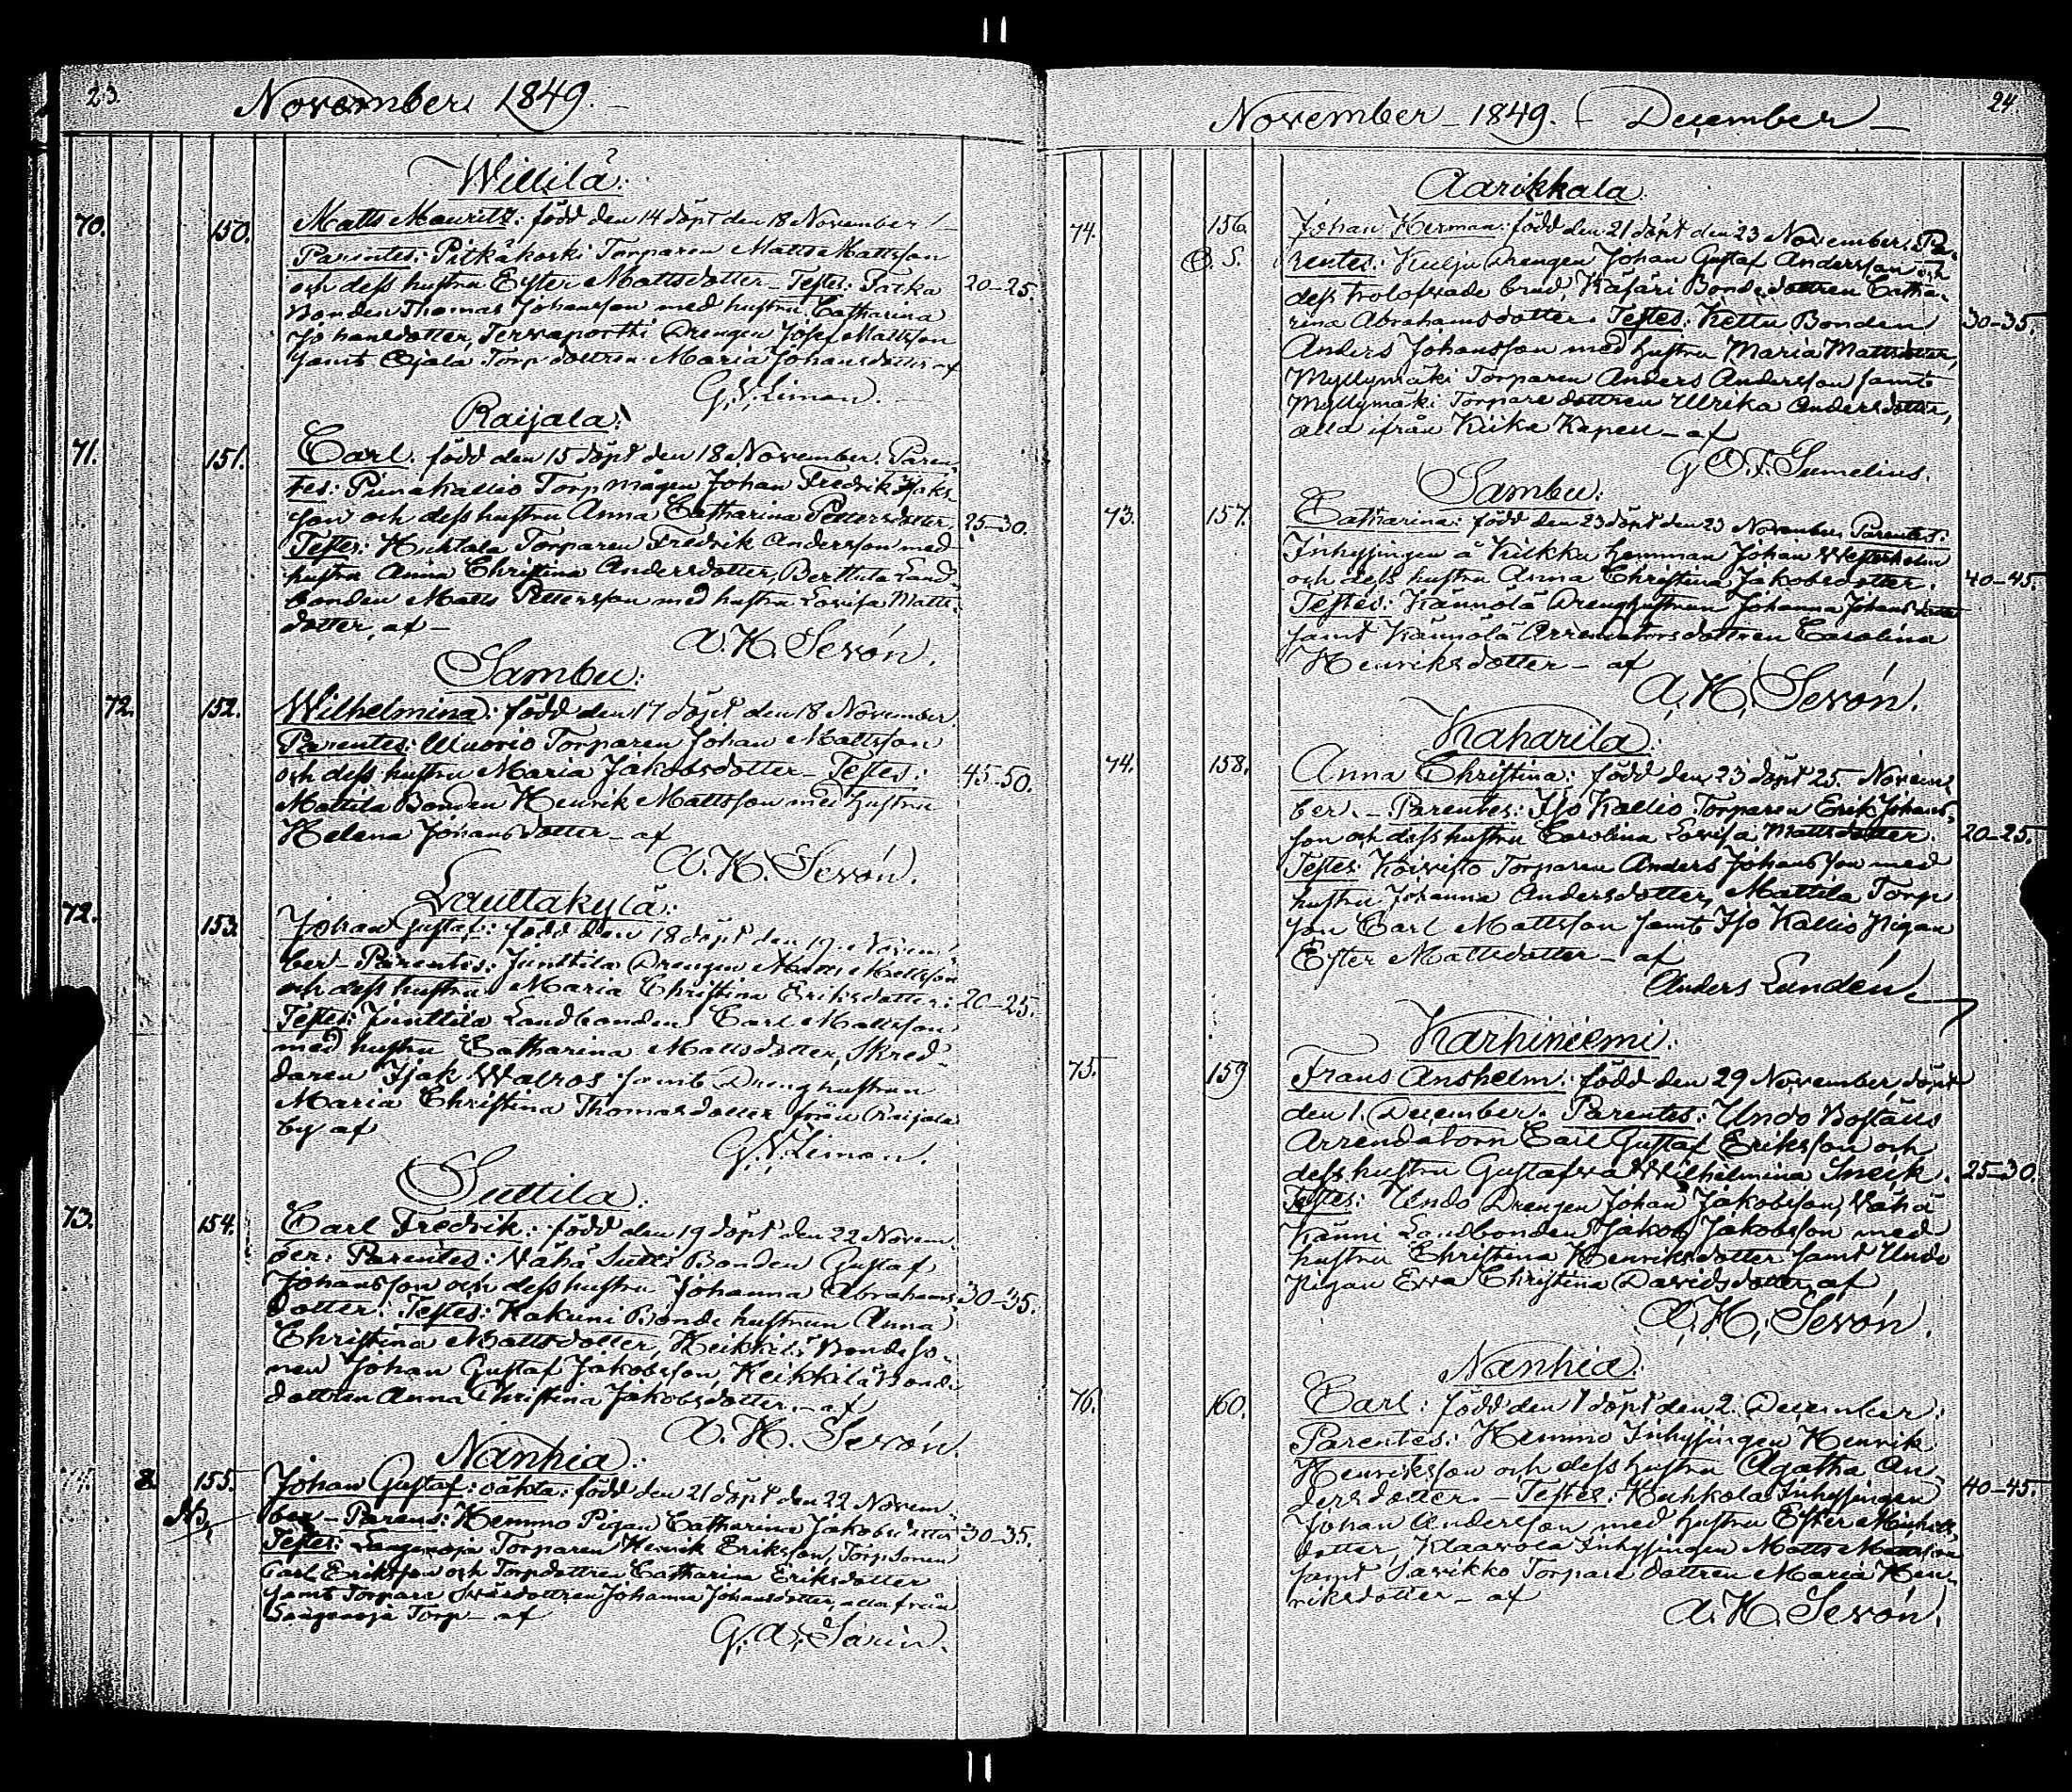 23.
November 1849.
Willilä:
70. 150. Matts Mauritz: född den 14 döpt den 18 November
Parentes: Pitkäkoski Torparen Matts Mattsson
och dess hustru Esther Mattsdotter – Testes: Patka 20–25.
Bonden Thomas Johansson med hustru Catharina
Johansdotter, Tervaportti Drengen Josef Mattsson
samt Ojala Torp dottren Maria Johansdotter – af
G. V. Liman.
Raijala:
71. 151. Carl. född den 15 döpt den 18 November. Paren-
tes: Punakallio Torpmågen Johan Fredrik Isaks-
son och dess hustru Anna Catharina Pettersdotter. 25–30.
Testes: Huhtala Torparen Fredrik Andersson med
hustru Anna Christina Andersdotter, Berttula Land-
bonden Matts Pettersson med hustru Lovisa Matts-
dotter, af –
A. H. Sevón.
Sambu:
72. 152. Wilhelmina: född den 17 döpt den 18 November.
Parentes: Wuorio Torparen Johan Mattsson
och dess hustru Maria Jakobsdotter – Testes: 45–50.
Mattila Bonden Henrik Mattsson med hustru
Helena Johansdotter – af
A. H. Sevón.
Lauttakylä:
72. 153. Johan Gustaf: född den 18 döpt den 19 Novem-
ber – Parentes: Junttila Drengen Matts Mattsson
och dess hustru Maria Christina Eriksdotter: 20–25.
Testes: Junttila Landbonden Carl Mattsson
med hustru Catharina Mattsdotter, Skräd-
daren Isak Walros samt Dreng hustrun
Maria Christina Thomasdotter från Raijala
by af
G. V. Liman.
Suttila:
73. 154. Carl Fredrik: född den 19 döpt den 22 Novem-
ber: Parentes: Vähä Sutti Bonden Gustaf
Johansson och dess hustru Johanna Abrahams- 30–35.
dotter: Testes: Kakuni Bonde hustrun Anna
Christina Mattsdotter, Heikkilä Bondeso-
nen Johan Gustaf Jakobsson, Heikkilä Bonde
dottren Anna Christina Jakobsdotter. – af
A. H. Sevón.
Nanhia:
8. 155. Johan Gustaf: oäkta: född den 21 döpt den 22 Novem-
NB. ber – Parens: Hemmo Pigan Catharina Jakobsdotter 30–35.
Testes: Torparen Henrik Eriksson, Torpsonen
Carl Eriksson och Torpdottren Catharina Eriksdotter
samt Torpare dottren Johanna Johansdotter, alla från
Torp – af
G. A. Sarin.
24
November – 1849. – December –
Aarikkala.
74. 156. Johan Herman: född den 21 döpt den 23 November. Pa-
O. S. rentes: Kulju Drengen Johan Gustaf Andersson och
dess trolofvade brud, Käsäri Bondedottren Catha-
rina Abrahamsdotter. Testes: Kettu Bonden 30–35.
Anders Johansson med hustru Maria Mattsdotter,
Myllymäki Torparen Anders Andersson samt
Myllymäki Torpare dottren Ulrika Andersdotter,
alla ifrån Kiika Kapell – af
G O. F. Sumelius.
Sambu:
73. 157. Catharina: född den 23 döpt den 23 November. Parentes:
Inhysingen å Kilkku hemman Johan Westerholm
och dess hustru Anna Christina Jakobsdotter. 40–45.
Testes: Kännölä Drenghustrun Johanna Johansdotter
samt Kännölä Arrendatorsdottren Carolina
Henriksdotter – af
A. H. Sevón.
Kaharila:
74. 158. Anna Christina: född den 23 döpt 25 Novem-
ber. – Parentes: Iso Kallio Torparen Erik Johans-
son och dess hustru Carolina Lovisa Mattsdotter. 20–25.
Testes: Koivisto Torparen Anders Johansson med
hustru Johanna Andersdotter, Mattila Torp
son Carl Mattsson samt Iso Kallio Pigan
Ester Mattsdotter – af
Anders Lundén.
Karhiniemi:
75. 159 Frans Anshelm: född den 29 November, döpt
den 1. December. Parentes: Undo Boställs
Arrendatorn Carl Gustaf Eriksson och
dess hustru Gustafva Wilhelmina Sneik. 25–30.
Testes: Undo Drengen Johan Jakobsson, Vähä
Känni Landbonden Jakob Jakobsson med
hustru Christina Henriksdotter samt Undo
Pigan Eva Christina Davidsdotter, af
A. H. Sevón.
Nanhia:
76. 160. Carl: född den 1 döpt den 2. December:
Parentes: Hemmo Inhysingen Henrik
Henriksson och dess hustru Agatha An-
dersdotter. – Testes: Kuhkola Inhysingen 40–45.
Johan Andersson med hustru Ester Michels-
dotter, Klaavola Inhysingen Matts Mattsson
samt Savikko Torpare dottren Maria Hen-
riksdotter – af
A. H. Sevón.